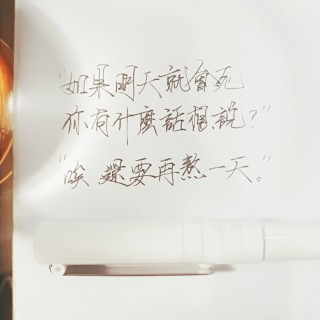 "如果明天就會死
你有什麼話想說？"
"唉 還要再熬一天。"